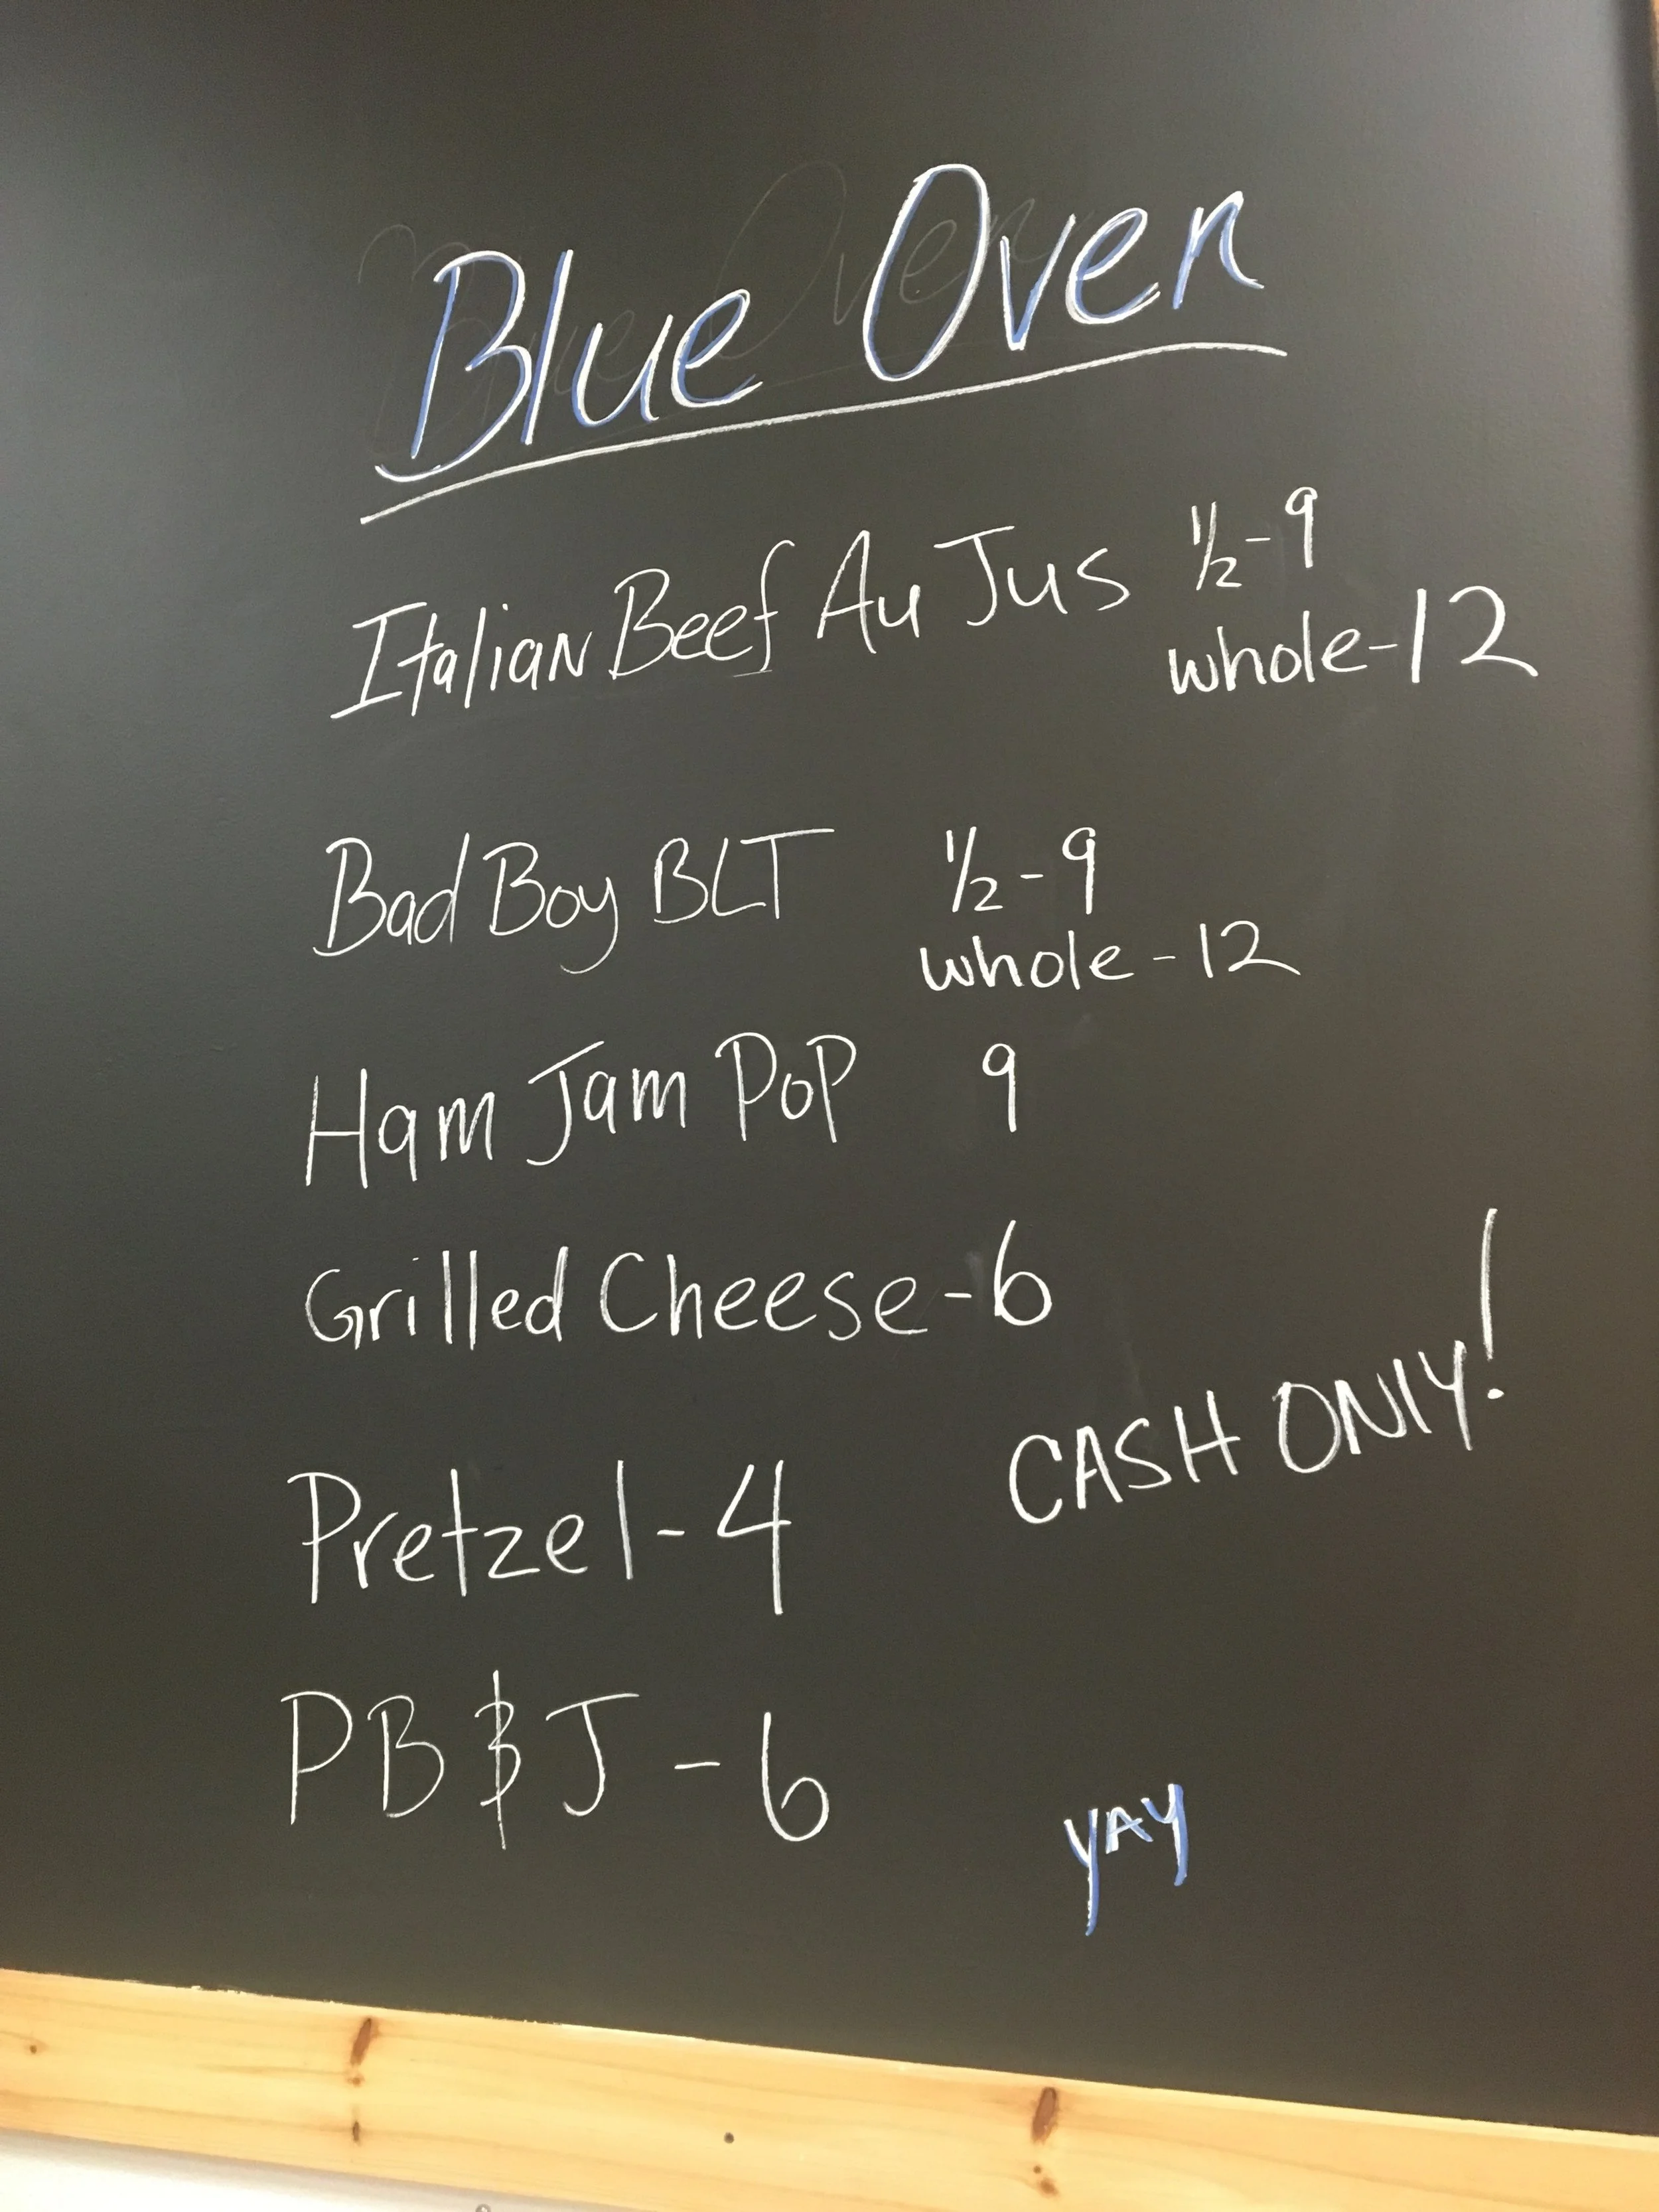 Blue Oven
Italian Beef Au Jus ½-9
whole-12
Bad Boy BLT ½-9
whole-12
Ham Jam PoP 9
Grilled Cheese-6
CASH ONLY!
Pretzel-4
PB & J-6
YAY